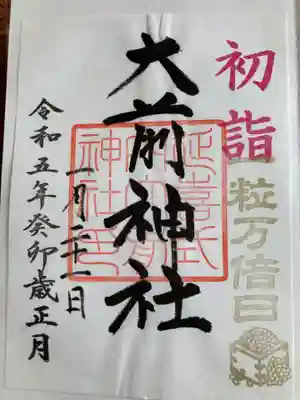 初詣
一粒万倍日
大前神社
延喜式内大前神社印
一月二十一日
令和五年癸卯歳正月